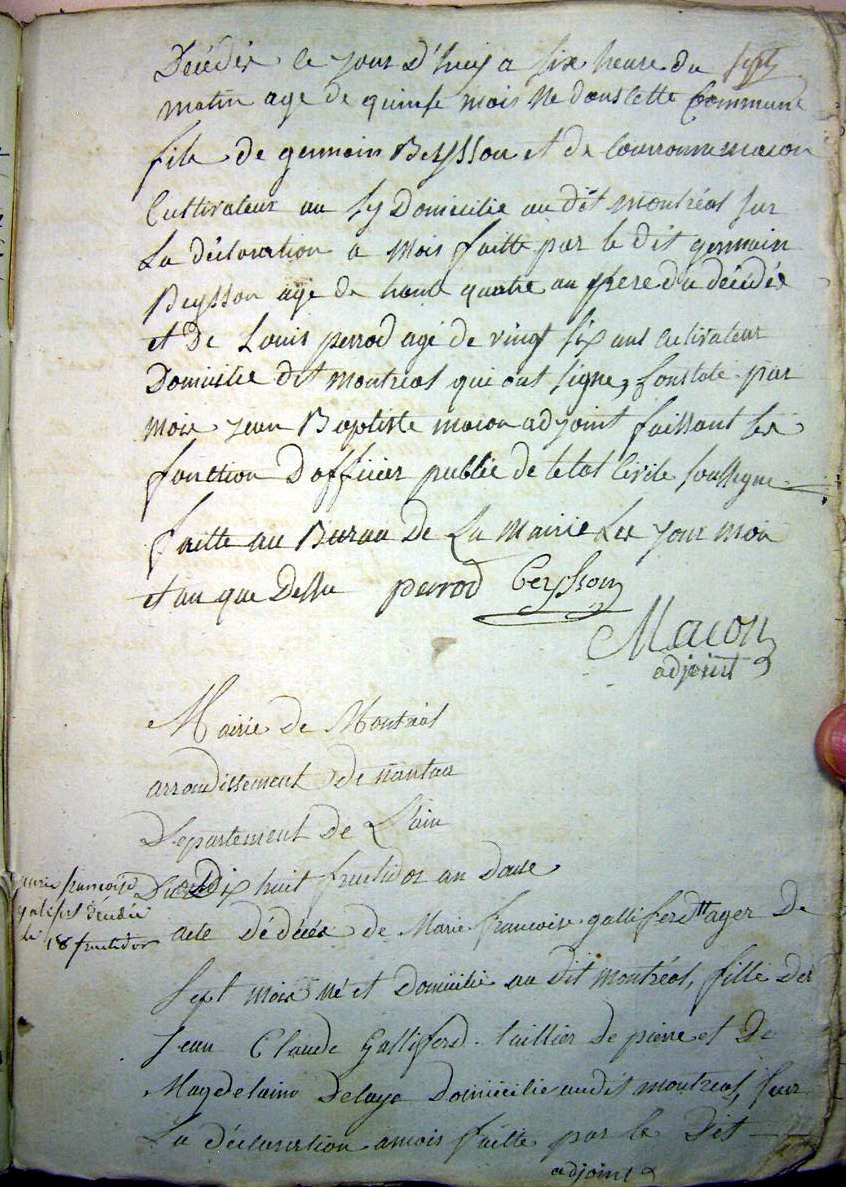 Décédés le jour D'huy a six heure du sept
matin age de quinse mois Né dans cette Commune
fils de germain Beysson et de Courronne macon
Cultivateur au Ly Domicilie au dit montréal sur
La déclaration a Mois faitte par le dit germain
Beysson age de trante quatre an frere du décédés
et De Louis perrod agé de vingt six ans Cultivateur
Domicilie dit montréal qui ont signe, Constate par
mois jean Baptiste macon adjoint faissant les
fonction D'officier publie de letat Civile soussigne
faitte au Bureau De La Mairie Les jour mois
et an que Dessu perrod Beysson
Macon
adjoint
Mairie de Montréal
arrondissement de nantua
Departement De L'ain
marie francoise
galifert Décédée
le 18 fructidor
Du Dix huit fructidor an Douse
acte Dédéces de Marie francoise galliferd ager De
Sept mois né et Domicilie au dit montréal, fille des
jean Claude Galliferd taillier De pierre et De
Magdelaine Delaya Domicilie audit montreal, sur
La déclaration a mois faitte par le Dit
adjoint